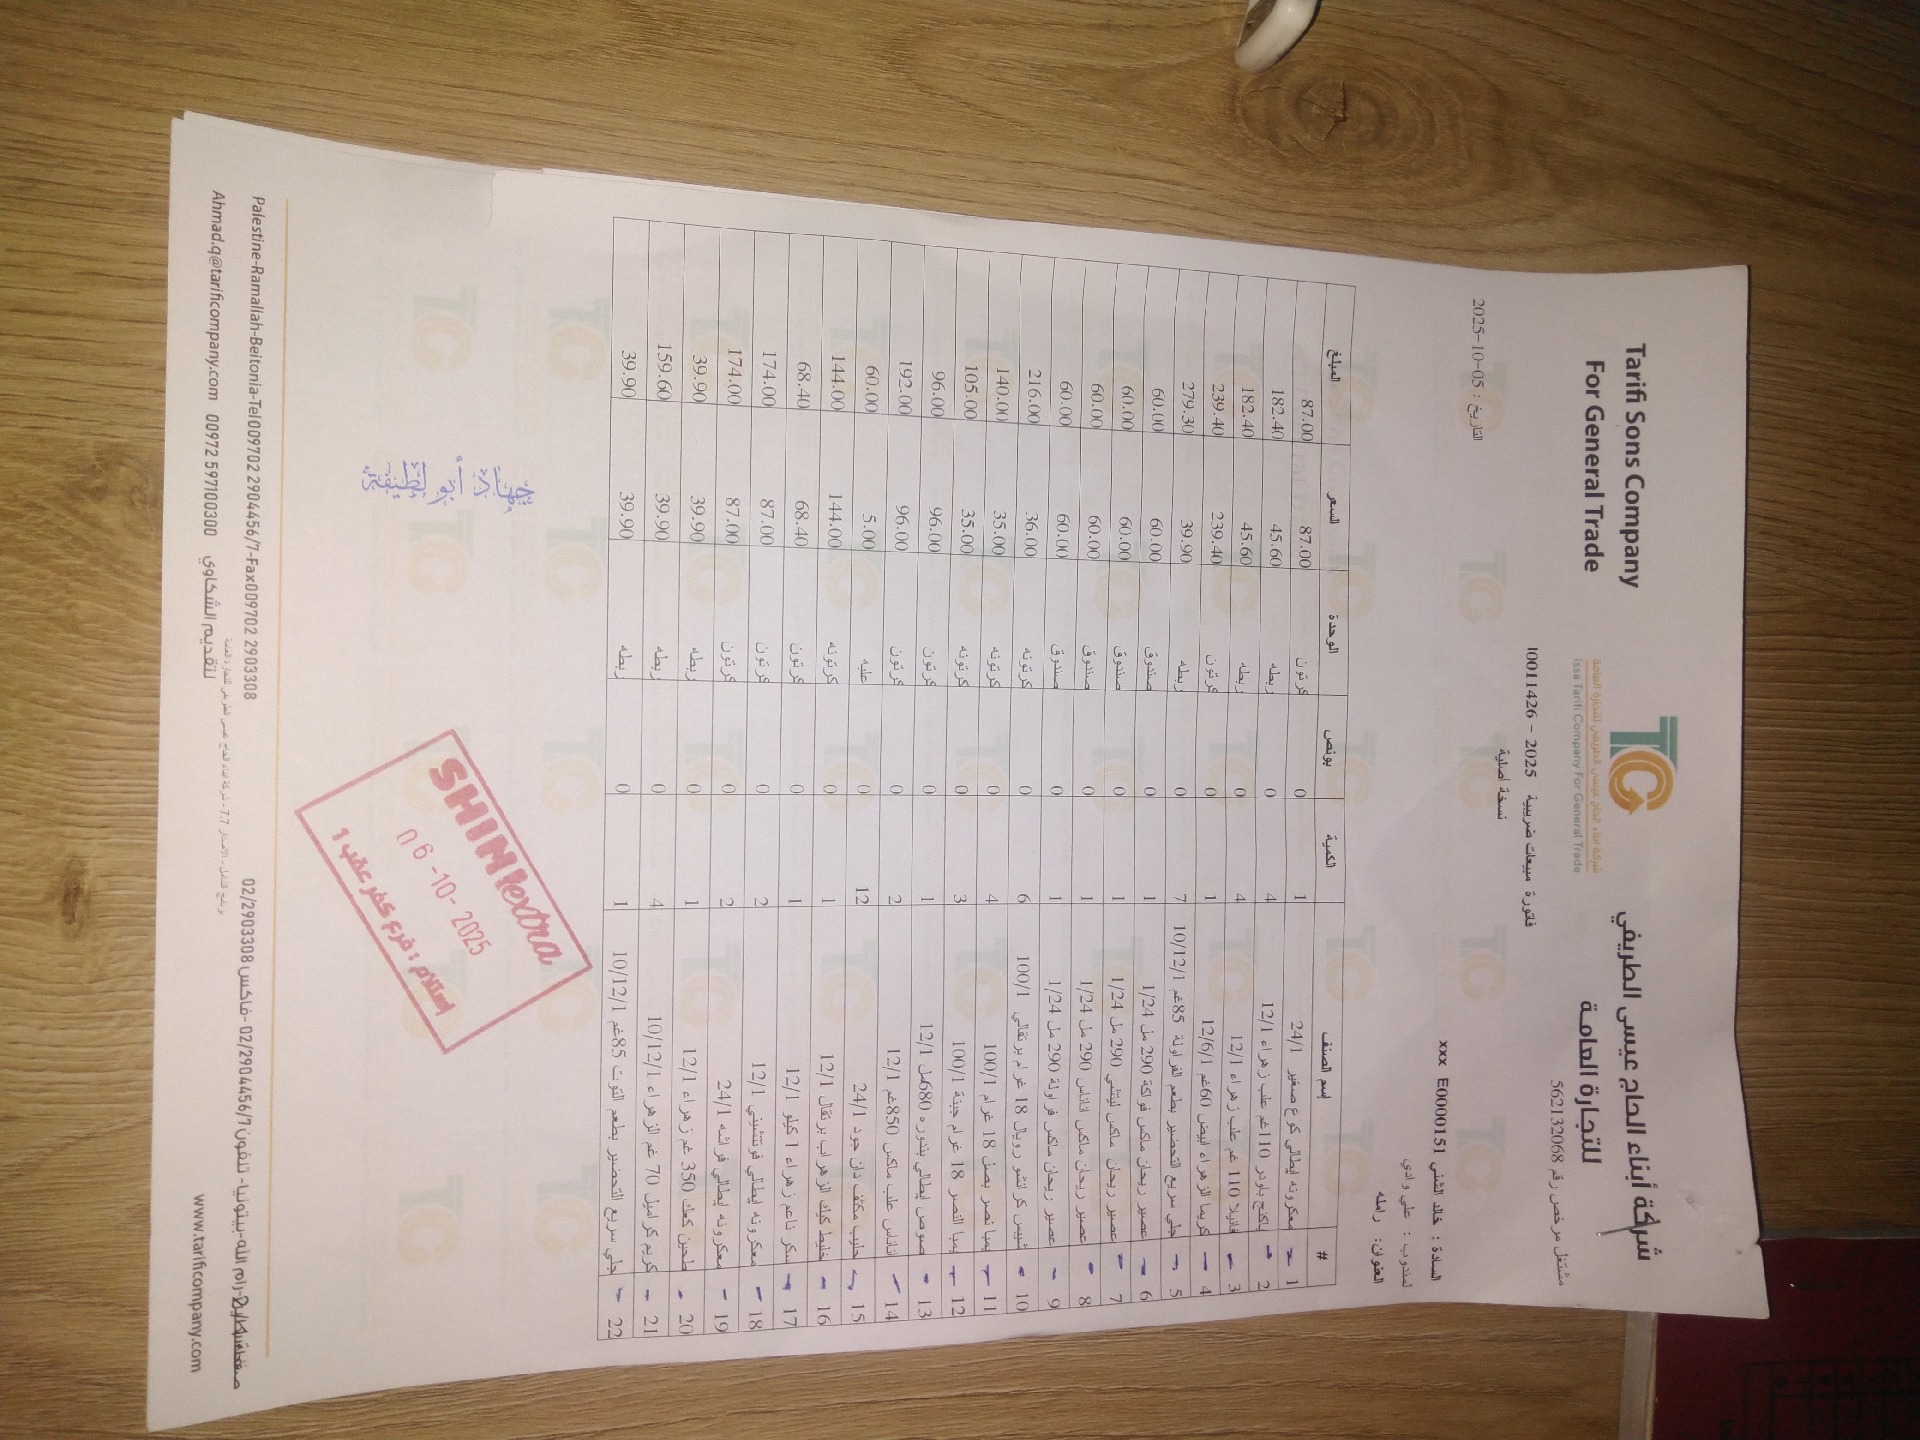 Tarifi Sons Company
For General Trade
TC
شركة أبناء الحاج عيسى الطريفي للتجارة العامة
Issa Tarifi Company For General Trade
شركة أبناء الحاج عيسى الطريفي
للتجارة العامة
مشتغل مرخص رقم 562132068
فاتورة مبيعات ضريبية 2025 - 10011426
نسخة أصلية
التاريخ : 2025-10-05
السادة : خالد الشني E0000151 xxx
لمندوب : علي وادي
العنوان: رامله
# إسم الصنف الكمية بونص الوحدة السعر المبلغ
1 معكرونه ايطالي كوع صغير 24/1 1 0 كرتون 87.00 87.00
2 باكنج باودر 110غم علب زهراء 12/1 4 0 ربطه 45.60 182.40
3 فانيلا 110 غم علب زهراء 12/1 4 0 ربطه 45.60 182.40
4 كريما الزهراء ابيض 60غم 12/6/1 1 0 كرتون 239.40 239.40
5 جلي سريع التحضير بطعم الفراولة 85غم 10/12/1 7 0 ربطه 39.90 279.30
6 عصير ريحان ماكس فواكة 290 مل 1/24 1 0 صندوق 60.00 60.00
7 عصير ريحان ماكس ليتشي 290 مل 1/24 1 0 صندوق 60.00 60.00
8 عصير ريحان ماكس اناناس 290 مل 1/24 1 0 صندوق 60.00 60.00
9 عصير ريحان ماكس فراولة 290 مل 1/24 1 0 صندوق 60.00 60.00
10 شيبس كرانشو رويال 18 غرام برتقالي 100/1 6 0 كرتونه 36.00 216.00
11 يمبا نصر بصل 18 غرام 100/1 4 0 كرتونه 35.00 140.00
12 يمبا النصر 18 غرام جبنة 100/1 3 0 كرتونه 35.00 105.00
13 صوص ايطالي بندوره 680مل 12/1 1 0 كرتون 96.00 96.00
14 اناناس علب ماكس 850غم 12/1 2 0 كرتون 96.00 192.00
15 حليب مكثف دان جود 24/1 12 0 علبه 5.00 60.00
16 خليط كيك الزهراب برتقال 12/1 1 0 كرتونه 144.00 144.00
17 سكر ناعم زهراء 1 كيلو 12/1 1 0 كرتون 68.40 68.40
18 معكرونه ايطالي فوتشيني 12/1 2 0 كرتون 87.00 174.00
19 معكرونه ايطالي فراشه 24/1 2 0 كرتون 87.00 174.00
20 طحين كعك 350 غم زهراء 12/1 1 0 ربطه 39.90 39.90
21 كريم كراميل 70 غم الزهراء 10/12/1 4 0 ربطه 39.90 159.60
22 جلي سريع التحضير بطعم التوت 85غم 10/12/1 1 0 ربطه 39.90 39.90
جهاد أبو لطيفة
SHINI extra
06-10-2025
استلام : فرع كفر عقب 1
برنامج الشامل - الاصدار 7.7 - شركة ابناء الحاج عيسى الطريفي للتجارة العامة
Palestine-Ramallah-Beitonia-Tel009702 2904456/7-Fax009702 2903308
رام الله-بيتونيا- تلفون 02/2904456/7 -فاكس 02/2903308
Ahmad.q@tarificompany.com 00972 597100300 لتقديم الشكاوي
www.tarificompany.com